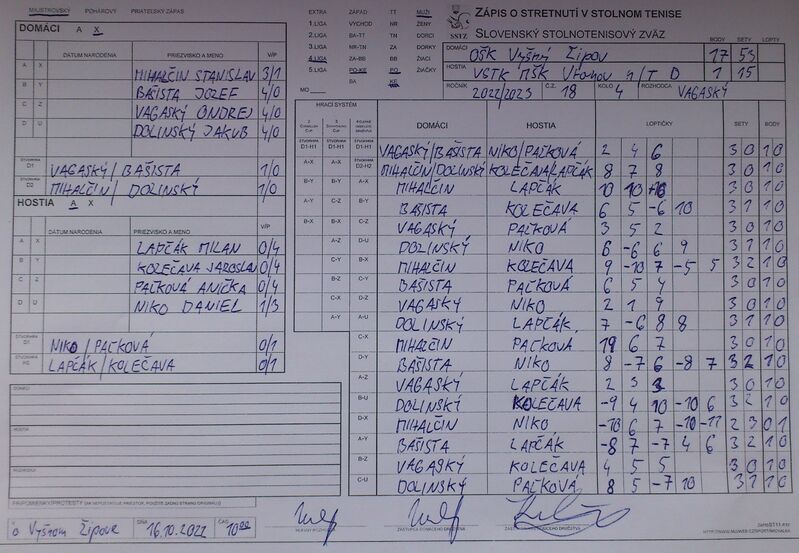 MAJSTROVSKÝ POHÁROVÝ PRIATEĽSKÝ ZÁPAS
DOMÁCI A X
DÁTUM NARODENIA PRIEZVISKO A MENO V/P
A X MIHALČIN STANISLAV 3/1
B Y BAŠISTA JOZEF 4/0
C Z VAGASKÝ ONDREJ 4/0
D U DOLINSKÝ JAKUB 4/0
ŠTVORHRA D1 VAGASKÝ/BAŠISTA 1/0
ŠTVORHRA D2 MIHALČIN/DOLINSKÝ 1/0
HOSTIA A X
DÁTUM NARODENIA PRIEZVISKO A MENO V/P
A X LAPČÁK MILAN 0/4
B Y KOLEČAVA JAROSLAV 0/4
C Z PAČKOVÁ ANIČKA 0/4
D U NIKO DANIEL 1/3
ŠTVORHRA NIKO/PAČKOVÁ 0/1
ŠTVORHRA LAPČÁK/KOLEČAVA 0/1
DOMÁCI
HOSTIA
ROZHODCA
PRIPOMIENKY/PROTESTY
v Vyšnom Žipove DŇA 16.10.2022 ČAS 10:00
EXTRA ZÁPAD TT MUŽI
1.LIGA VÝCHOD NR ŽENY
2.LIGA BA-TT TN DORCI
3.LIGA NR-TN ZA DORKY
4.LIGA ZA-BB BB ŽIACI
5.LIGA PO-KE PO ŽIAČKY
BA KE
MO
SSTZ
ZÁPIS O STRETNUTÍ V STOLNOM TENISE
SLOVENSKÝ STOLNOTENISOVÝ ZVÄZ
BODY SETY LOPTY
DOMÁCI OŠK Vyšný Žipov 17 53
HOSTIA VSTK MŠK Vranov n/T D 1 15
ROČNÍK 2022/2023 Č.Z. 18 KOLO 4 ROZHODCA VAGASKÝ
HRACÍ SYSTÉM DOMÁCI HOSTIA LOPTIČKY SETY BODY
VAGASKÝ/BAŠISTA NIKO/PAČKOVÁ 2 4 6 3 0 1 0
MIHALČIN/DOLINSKÝ KOLEČAVA/LAPČÁK 8 7 8 3 0 1 0
MIHALČIN LAPČÁK 10 10 3 0 1 0
BAŠISTA KOLEČAVA 6 5 -6 10 3 1 1 0
VAGASKÝ PAČKOVÁ 3 5 2 3 0 1 0
DOLINSKÝ NIKO 6 -6 6 9 3 1 1 0
MIHALČIN KOLEČAVA 9 -10 7 -5 5 3 2 1 0
BAŠISTA PAČKOVÁ 6 5 4 3 0 1 0
VAGASKÝ NIKO 2 1 9 3 0 1 0
DOLINSKÝ LAPČÁK 7 -6 8 8 3 1 1 0
MIHALČIN PAČKOVÁ 6 7 3 0 1 0
BAŠISTA NIKO 8 -7 6 -8 7 3 2 1 0
VAGASKÝ LAPČÁK 2 3 3 3 0 1 0
DOLINSKÝ KOLEČAVA -9 4 10 -10 6 3 2 1 0
MIHALČIN NIKO -10 6 7 -10 -11 2 3 0 1
BAŠISTA LAPČÁK -8 7 -7 4 6 3 2 1 0
VAGASKÝ KOLEČAVA 4 5 5 3 0 1 0
DOLINSKÝ PAČKOVÁ 8 5 -7 10 3 1 1 0